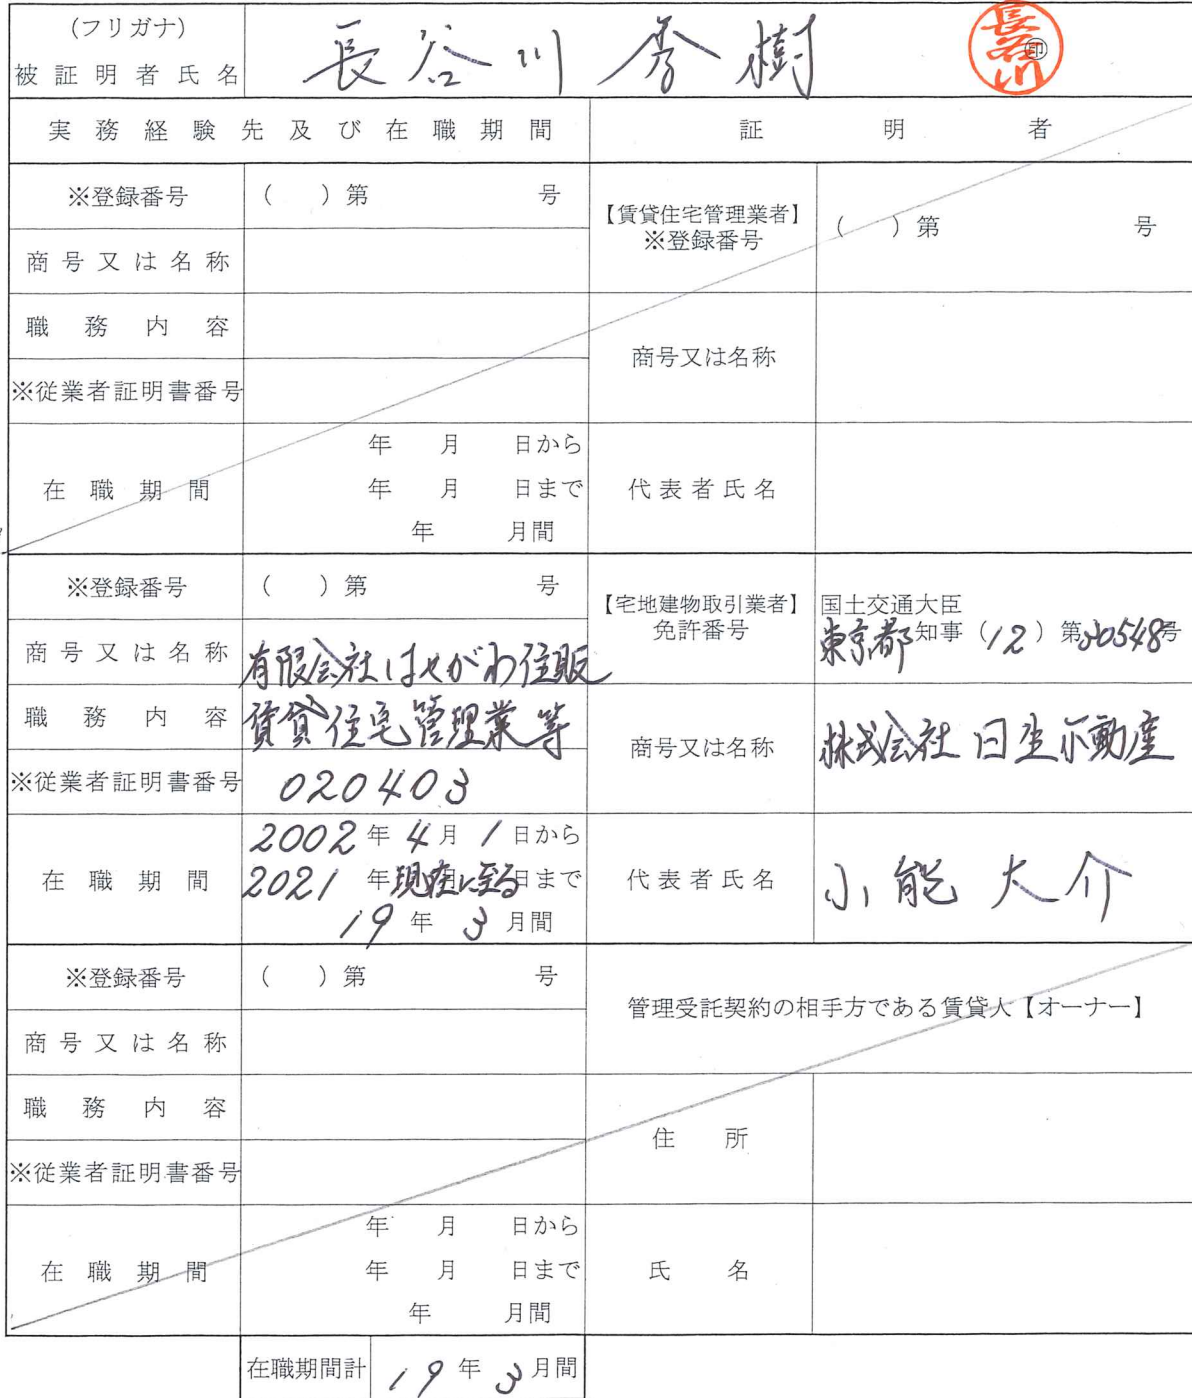 (フリガナ)
被証明者氏名 長谷川 秀樹 長谷川 ㊞
実務経験先及び在職期間 証明者
※登録番号 ( )第 号
商号又は名称
職務内容
※従業者証明書番号
在職期間 年 月 日から
年 月 日まで
年 月間
【賃貸住宅管理業者】
※登録番号 ( )第 号
商号又は名称
代表者氏名
※登録番号 ( )第 号
商号又は名称 有限会社はせがわ住販
職務内容 賃貸住宅管理業等
※従業者証明書番号 020403
在職期間 2002年4月1日から
2021年現在に至る日まで
19年3月間
【宅地建物取引業者】
免許番号
国土交通大臣
東京都知事(12)第30548号
商号又は名称 株式会社日生不動産
代表者氏名 小能大介
※登録番号 ( )第 号
商号又は名称
職務内容
※従業者証明書番号
在職期間 年 月 日から
年 月 日まで
年 月間
管理受託契約の相手方である賃貸人【オーナー】
住所
氏名
在職期間計 19年3月間